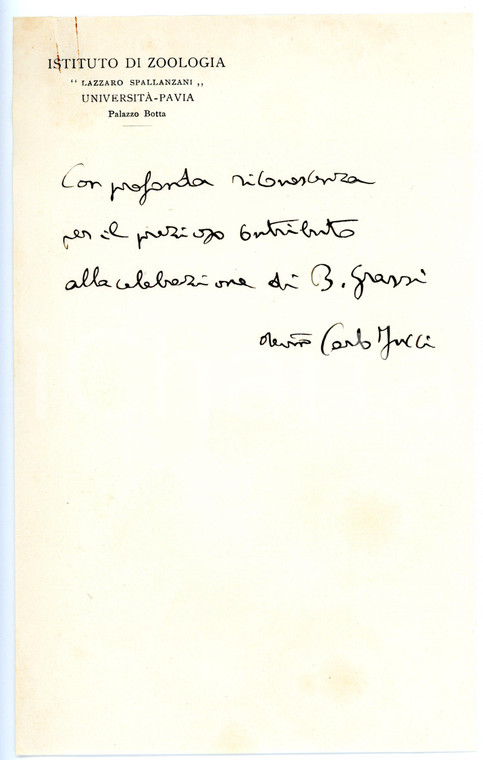 ISTITUTO DI ZOOLOGIA
“ LAZZARO SPALLANZANI „
UNIVERSITÀ-PAVIA
Palazzo Botta
Con profonda riconoscenza
per il prezioso contributo
alla celebrazione di B. Grassi
Carlo Jucci